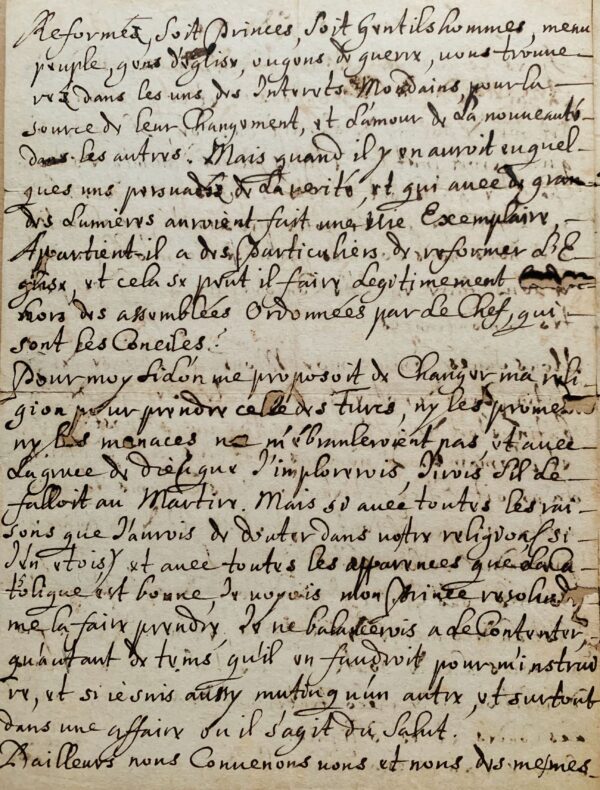 Reformés, soit Princes, soit Gentilshommes, menu
peuple, gens d'église, ou gens de guerre, vous trouve-
rez dans les uns des Interets Mondains pour la
source de leur Changement, et L'amour de La nouveauté
dans les autres. Mais quand il y en auroit eu quel-
ques uns persuadés de La verité, et qui avec de gran-
des Lumières auroient fait une vie Exemplaire,
Appartient-il a des Particuliers de reformer L'E-
glise, et cela se peut il faire Legitimement
hors des assemblées Ordonnées par Le Chef, qui
sont les Conciles?
Pour moy si L'on me proposoit de Changer ma reli-
gion pour prendre celle des turcs, ny les promes
ny les menaces ne m'ébranleroient pas, et avec
La grace de dieu que J'implorerois, J'irois s'il Le
falloit au Martire. Mais si avec toutes les rai-
sons que J'aurois de douter dans notre religion (si
J'en etois) et avec toutes les apparences que La Ca
tolique est bonne, Je voyois mon Prince resolu
me la faire prendre, Je ne balancerois a Le Contenter,
qu'autant de tems qu'il en faudroit pour m'instrui
re, et si ie suis aussy mutin qu'un autre, et surtout
dans une affaire ou il s'agit du Salut.
D'ailleurs nous Convenons vous et nous des mesmes